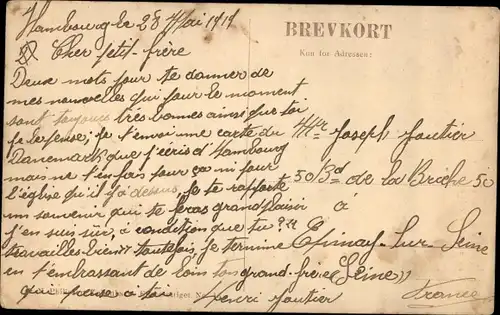 Hambourg le 28 Mai 1919
Cher petit-frère
Deux mots pour te donner de
mes nouvelles qui pour le moment
sont toujours très bonnes ainsi que toi
je le pense; Je t'envoi une carte du
Danemark que j'écris d'Hambourg
mais ne t'en fais pour ça ni pour
l'église qu'il y a dessus, Je te rapporte
un souvenir qui te feras grand plaisir
j'en suis sûr, à condition que tu
travailles bien toutefois, Je termine
en t'embrassant de loin ton grand-frère
qui pense à toi Henri Gautier
BREVKORT
Kun for Adressen:
Mr Joseph Gautier
50 Bd de la Briche 50
à
Epinay-Sur-Seine
(Seine)
France